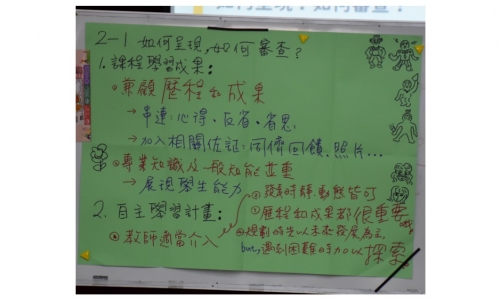 如何呈現？如何審查？
2-1 如何呈現,如何審查？
1.課程學習成果：
兼顧歷程和成果
→串連:心得、反省、省思
→加入相關佐証:同儕回饋、照片...
專業知識及一般知能並重
→展現學生能力
2. 自主學習計畫：
教師適當介入
①發想時靜動態皆可
②歷程和成果都很重要
規劃時先以未來發展為主,
but,遇到困難時加以探索